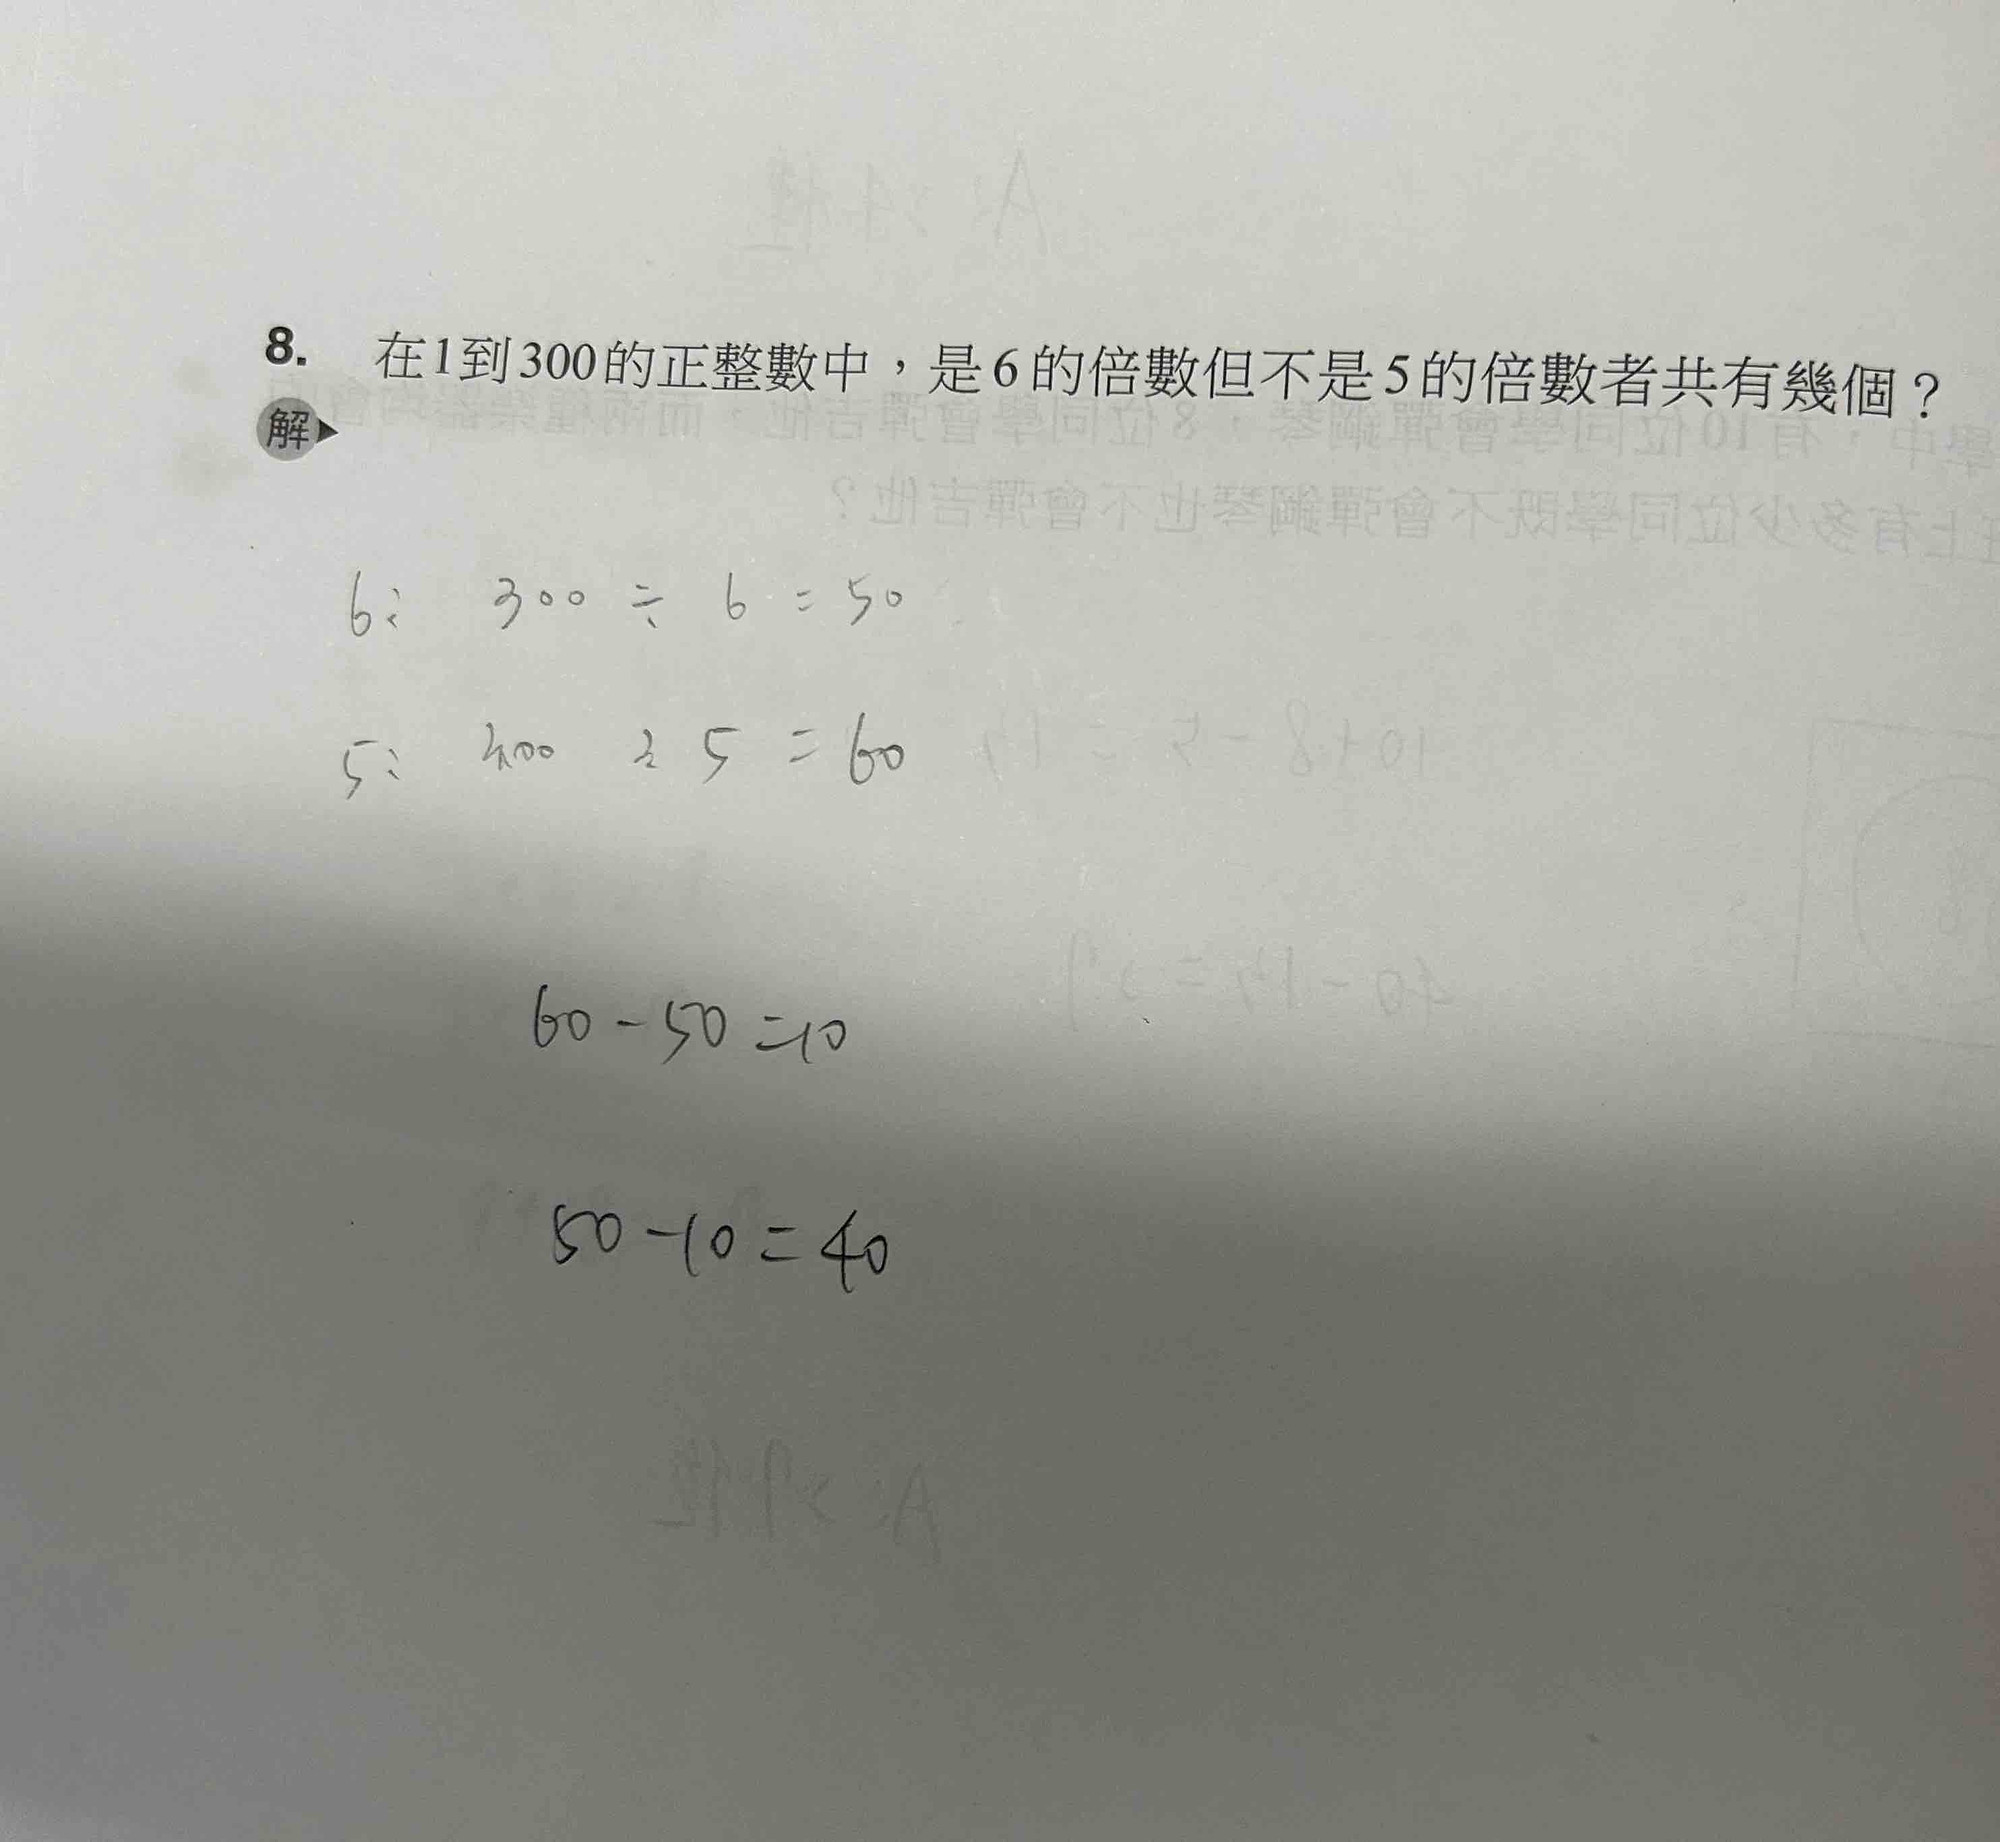 8. 在1到300的正整數中，是6的倍數但不是5的倍數者共有幾個？
解
6: 300 ÷ 6 = 50
5: 300 ÷ 5 = 60
60 - 50 = 10
50 - 10 = 40